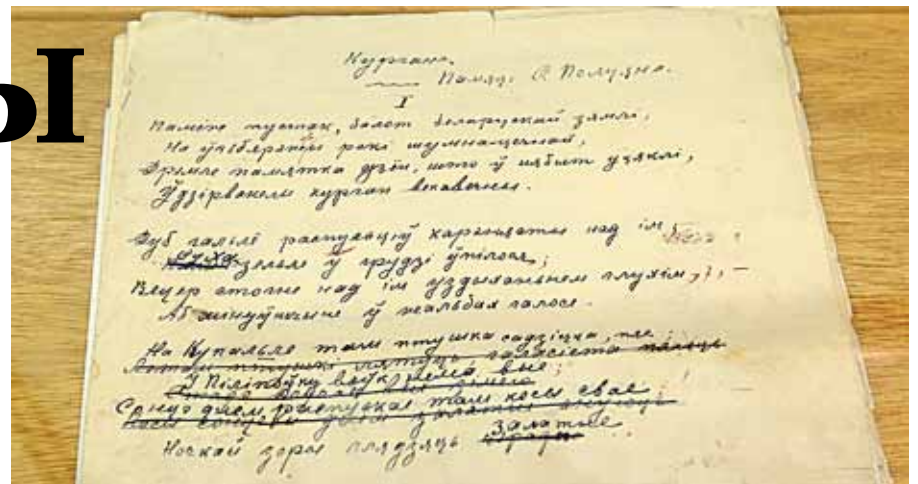 ы
Курган.
Памяці С. Палуяна.
I
Паміж пустак, балот беларускай зямлі,
На ўзбярэжжы ракі шумнацечнай,
Дрэмле памятка дзён, што ў нябыт уцяклі,
Ўдзірванелы курган векавечны.
Дуб галлё распусціў каранасты над ім,
зельле ў грудзі ўпілося;
Вецер стогне над ім уздыханьнем глухім,
Аб мінуўшчыне ў жальбах галосе.
На Купальле там птушка садзіцца, пяе,
У Піліпаўку воўк нема вые;
Сонцо днём роспускае там косы свае,
Ночкай зоры глядзяць залатые